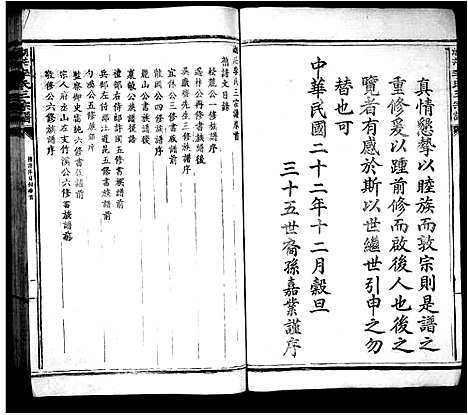 真情懇摯以睦族而敦宗則是譜之
重修爰以踵前修而啟後人也後之
覽者有感於斯以世繼世引申之勿
替也可
中華民國二十二年十二月穀旦
三十五世裔孫嘉業謹序
李氏三宗譜卷首
舊譜文目錄
松麓公一修譜序
丹書族譜後
先生三修族譜序
宜休公三修族譜
公四修族譜序
麓山公書族譜後
襄敏公族譜後語
禮部右侍郎許閣五修書族譜前
兵部左侍郎汪道昆五修書族譜前
勺庵公五修族譜序
監察御史六修書族譜前
宗人府丞山左支竹溪公六修書族譜前
敬修公六修族譜序